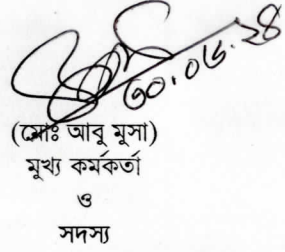 ৩০.০৬.২৪
(মোঃ আবু মুসা)
মুখ্য কর্মকর্তা
ও
সদস্য